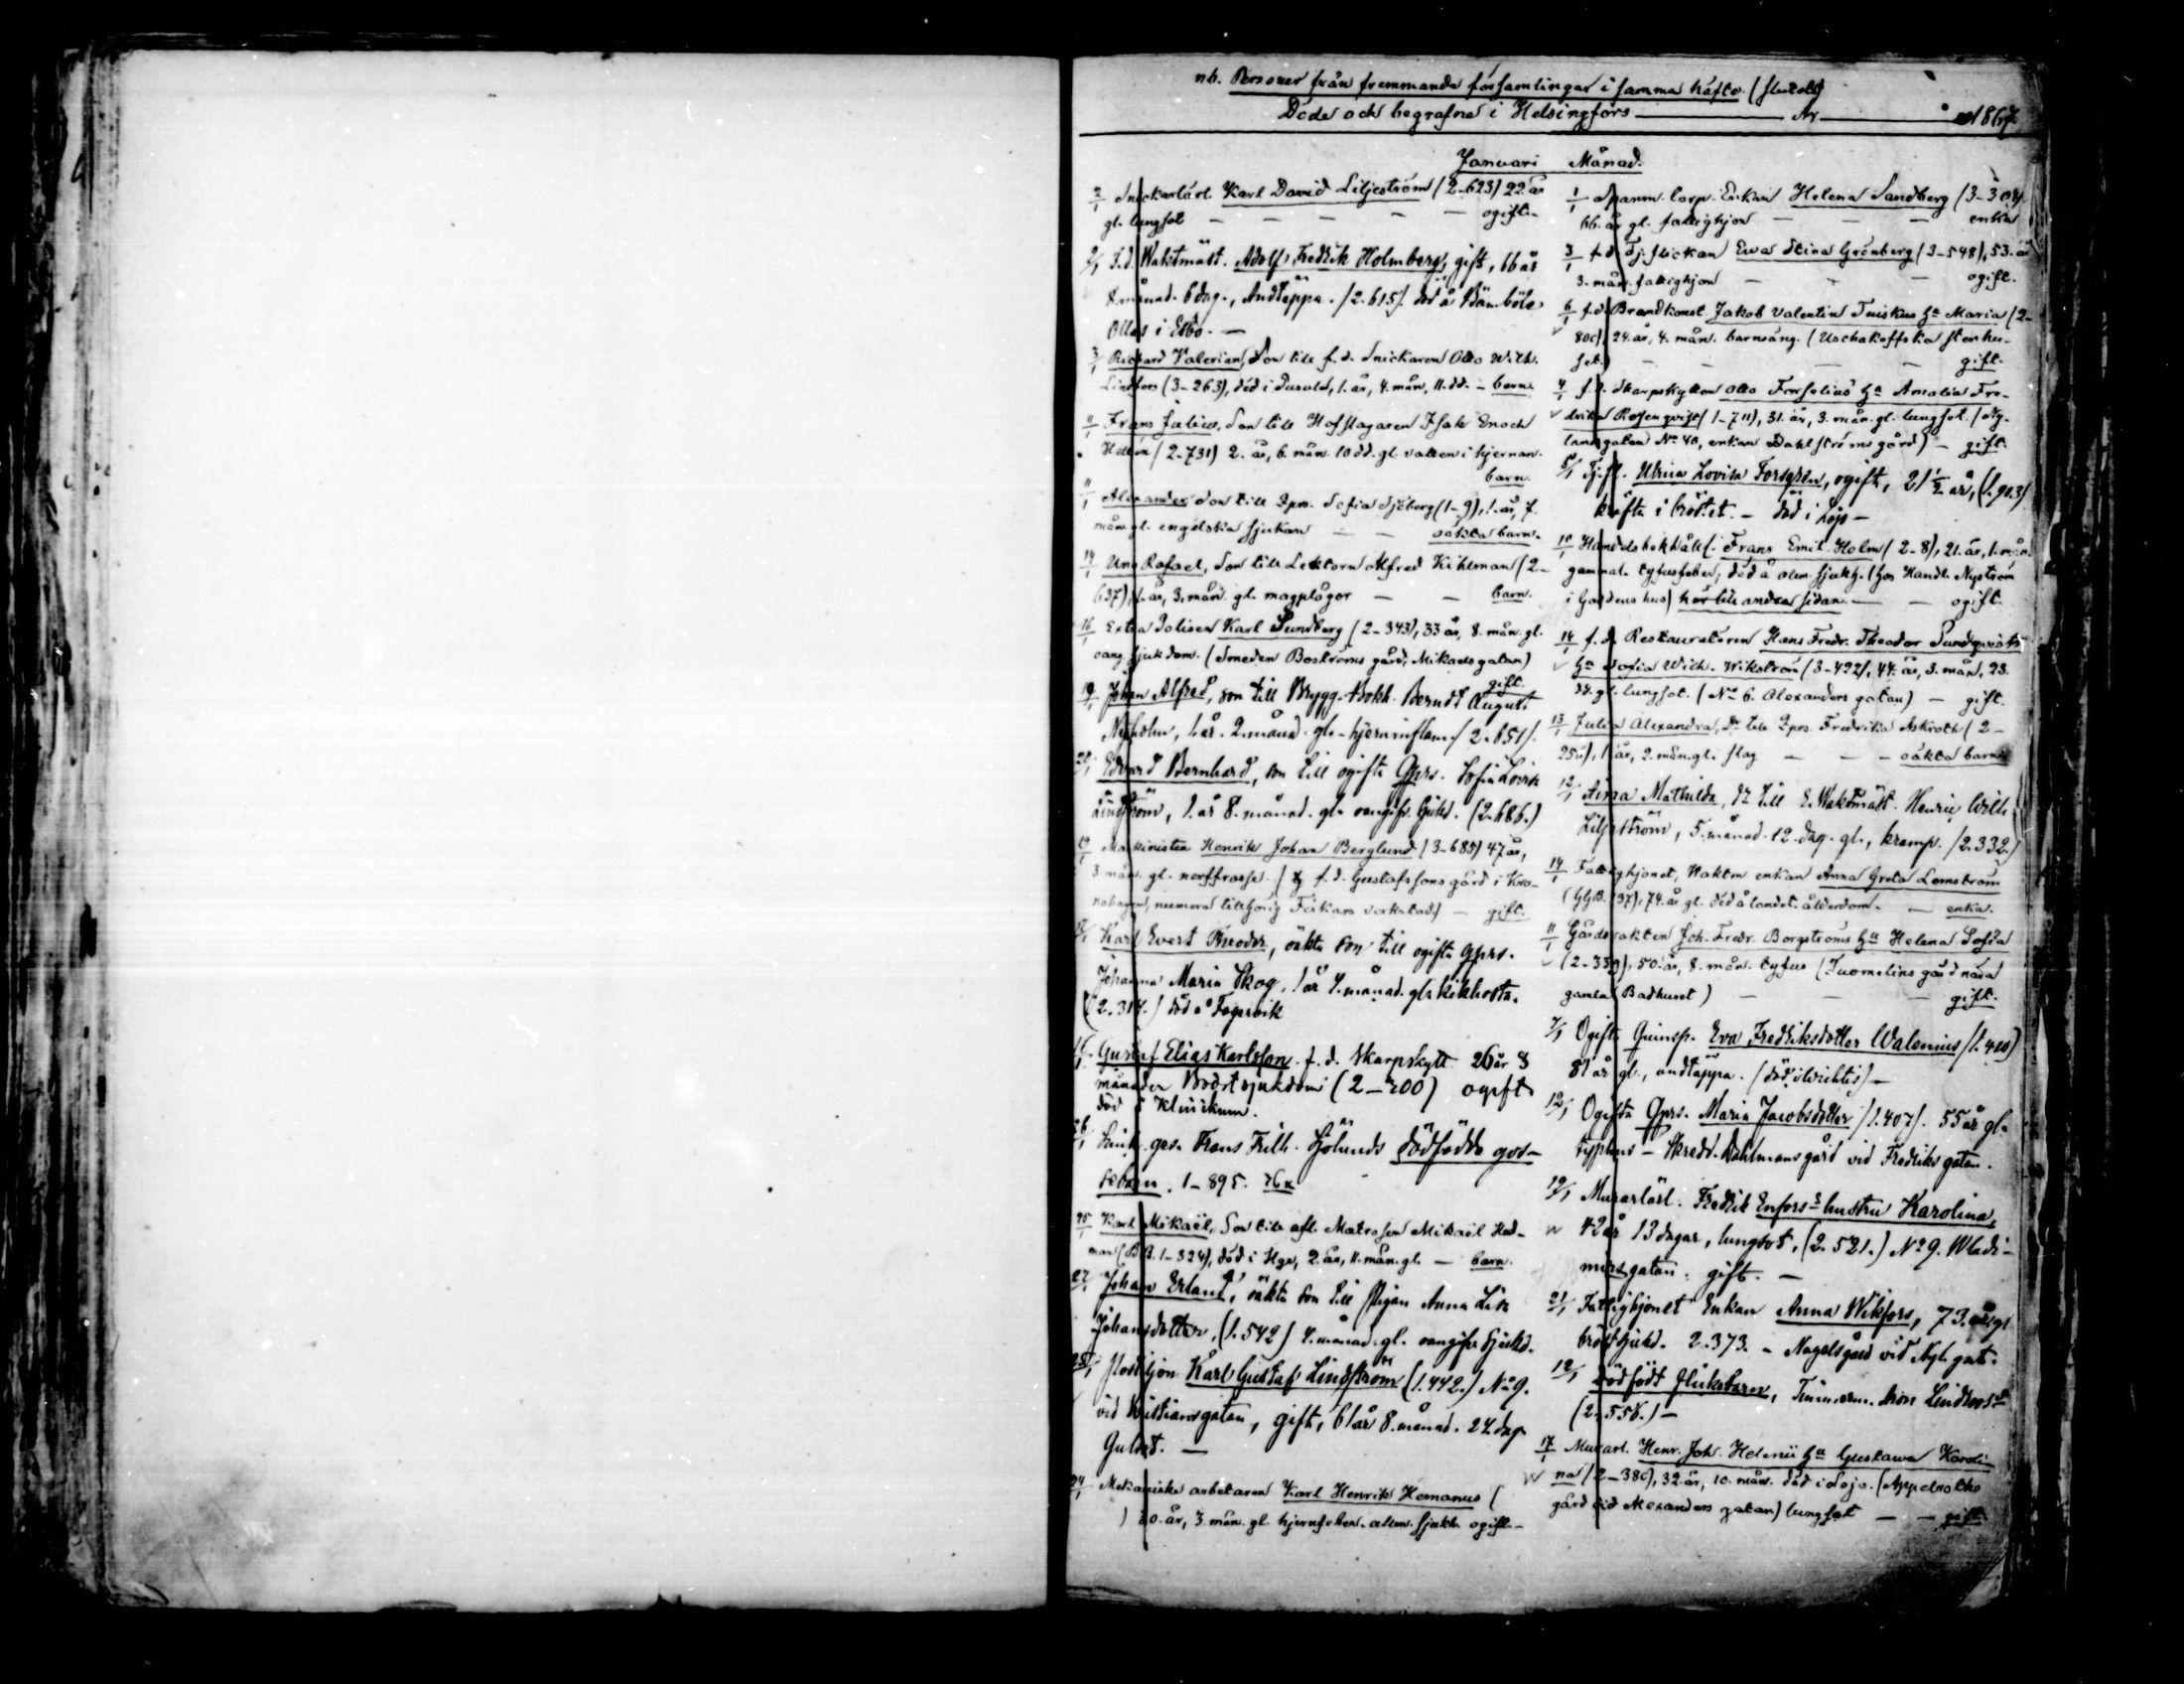 nb. Personer från fremmande församlingar i samma häfte. (slutet)
Döde och begrafne i Helsingfors — År — 1867.
Januari Månad.
2/1 Snickarlärl. Karl David Liljeström (2-623) 22 år
gl. lungsot — — — — — ogift.
2/1 F.d. Waktmäst. Adolf Fredrik Holmberg, gift, 66 år
8 månad. 6 dag., Andtäppa. (2.615). död å Bämböle
Ollas i Esbo. —
3/1 Richard Valerian, Son till f. d. Snickaren Otto Wilh.
Lindfors (3-263), död i 1. år, 4. mån. 11. dd. - barn.
11/1 Frans Julius, Son till Hofslagaren Isak Enoch
(2-731) 2. år, 6. mån. 10 dd. gl. vatten i hjernan.
barn.
11/1 Alexander Son till Qprs. Sofia Sjöberg (1-9), 1. år, 7.
mån gl. engelska sjukan — — oäkta barn.
14/1 Uno Rafael, Son till Lektorn Alfred Kihlman (2-
637), 1. år, 3. mån. gl. magplågor — — barn.
16/1 Extra Polisen Karl Sundberg (2-343), 33 år, 8. mån. gl.
oang. sjukdom. (Smeden Boströms gård, Mikaelsgatan)
gift.
19/1 Johan Alfred, son till Brygg. Bokh. Berndt August
Nyholm, 1. år. 2. månad. gl. hjerninflam. (2.651).
20/1 Edvard Bernhard, son till ogifta Qprs. Sofia Lovisa
Lindström, 1. år 8. månad. gl. oangifv. sjukd. (2.686.)
19/1 Maskinisten Henrik Johan Berglund (3-685) 47 år,
3 mån. gl. nerffrossa. ( f. d. Gustafssons gård i Kro-
nohagen, numera tillhörig Fiskars verkstad) — gift.
Karl Evert Theodor, oäkta son till ogifta Qprs.
Johanna Maria Skog. 1 år 4. månad. gl. kikhosta.
(2.314.) död å Fagervik
Gustaf Elias Karlsson f. d. Skarpskytt 26 år 8
månader Bröstsjukdom (2-200) ogift
död å Klinikum.
26/1 Snick. ges. Frans Fredr. Sjölunds dödfödda gos-
sebarn. 1-895.
25/1 Karl Mikaël, Son till afl. Matrosen Mikaël Hed-
man (B.B. 1-324), död i Hgr, 2. år, 11. mån. gl. — barn.
27/1 Johan Erland, oäkta son till Pigan Anna Lisa
Johansdotter, (1.542) 4. månad. gl. oangifv. sjukd.
25/1 Postiljon Karl Gustaf Lindström (1.442.) No 9.
vid Kristiansgatan, gift, 61 år 8. månad. 24. dag.
Gulsot. —
24/1 Mekaniske arbetaren Karl Henrik Hemanus (
) 20. år, 3. mån. gl. hjernfeber. allm. sjukh. ogift. -
1/1 Spanm. Corp. Enkan Helena Sandberg (3-308)
66. år gl. fattighjon — — — enka
3/1 f. d. Tj. flickan Ewa Stina Grönberg (3-548), 53. år
3. mån. fattighjon — — — ogift.
6/1 f.d. Brandkonst. Jakob Valentin Tuiskus ha Maria (2-
800), 24. år, 4. mån. barnsäng. (Uschakoffska stenhu-
set.) — — — — gift.
4/1 f. d. Skarpskytten Otto Forselius' ha Amalia Fre-
drika Rosenqvist (1-711), 31. år, 3. mån. gl. lungsot. (Ny-
landsgatan No 40, enkan Dahlströms gård) — gift.
5/1 Tj.fl. Ulrica Lovisa Forsgren, ogift, 21 1/2 år, (1.903)
kräfta i bröstet. — död i Lojo —
10/1 Handelsbokhåll. Frans Emil Holm (2-8), 21. år, 1. mån.
gammal. tyfusfeber; död å alm. sjukh. (hos Handl. Nyström
i Gardens hus) hör till andra sidan. — — ogift.
14/1 f. d. Restauratören Hans Fredr. Theodor Sundqvists
ha Sofia Wilh. Wikström (3-422), 44. år, 3. mån, 23.
dd. gl. lungsot. (No 6. Alexanders gatan) — gift.
13/1 Julia Alexandra, Dr till Qprs. Fredrika Askroth (2-
250), 1 år, 2. mån. gl. slag — — — oäkta barn
12/1 Aina Mathilda, dr till E. Waktmäst. Henric Wilh.
Liljeström, 5. månad. 12. dag. gl., kramp. (2.332.)
14/1 Fattighjonet, Wakten enkan Anna Greta Lemström
(GgB. 197), 74. år gl. död å landet. ålderdom. — enka.
11/1 Gårdsvakten Joh. Fredr. Borgströms ha Helena Sofia
(2-339), 50. år, 8. mån. tyfus (Tuomelins gård nära
gamla Badhuset) — — — gift.
7/1 Ogift Qvinsp. Eva Fredriksdotter Walenius (1.410)
81 år gl., andtäppa. (död i Wichtis) —
12/1 Ogifta Qprs. Maria Jacobsdotter (1.407). 55 år gl.
typhus — Skredd. Dahlmans gård vid Fredriks gatan.
19/1 Murarlärl. Fredrik Enfors's hustru Karolina,
42 år 13 dagar, lungsot, (2.521.) No 9. Wladi-
mirsgatan. gift. —
21/1 Fattighjonet Enkan Anna Wikfors, 73. år gl.
bröstsjukd. 2.373. — Nagels gård vid Nyl. gat.
12/1 Dödfödt flickebarn, Timmerm. Lindroos's
(2.558.) —
17/1 Murarl. Henr. Joh. Helenii ha Gustawa Karoli-
na (2-380), 32. år, 10. mån. död i Lojo. (Appelroths
gård vid Alexanders gatan) lungsot — — gift.